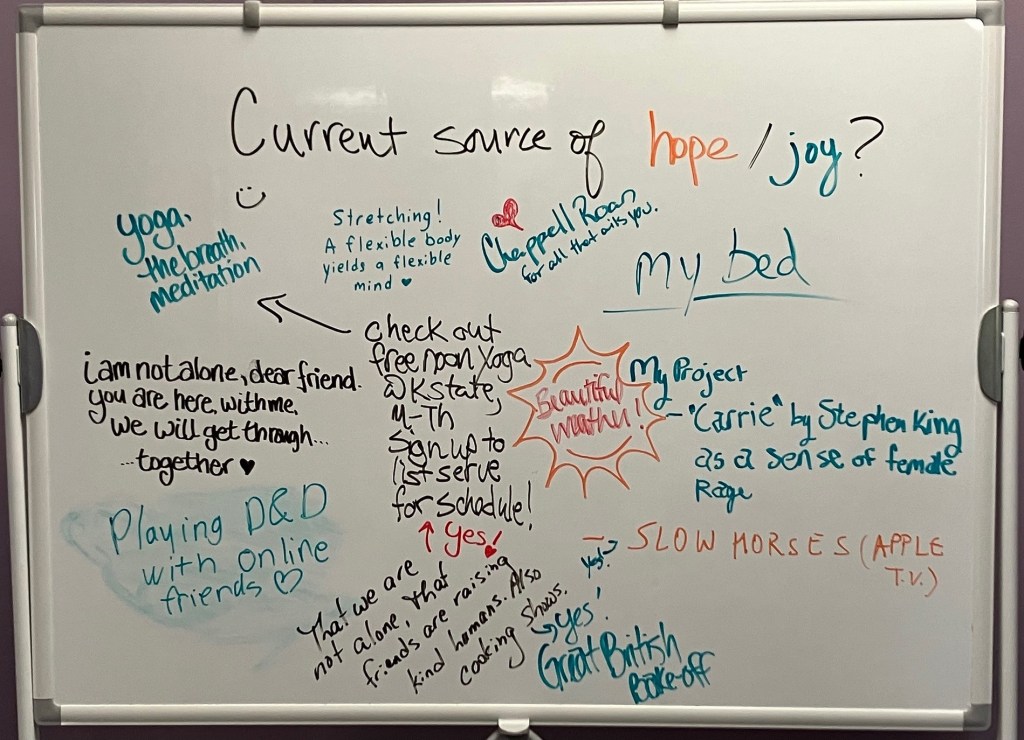 Current source of hope / joy?
yoga,
the breath,
meditation
Stretching!
A flexible body
yields a flexible
mind ♥
Chappell Roan
for all that ails you.
My bed
check out
free noon yoga
@ Kstate,
M-Th
Sign up to
list serve
for schedule!
↑ Yes!
i am not alone, dear friend.
you are here, with me,
we will get through...
...together ♥
Beautiful
weather!
My Project
- "Carrie" by Stephen King
as a sense of female
Rage
Playing D&D
with online
friends ♡
- SLOW HORSES (APPLE
T.V.)
yes! →
That we are
not alone, that
friends are raising
kind humans. Also
cooking shows.
→ yes!
Great British
Bake-off